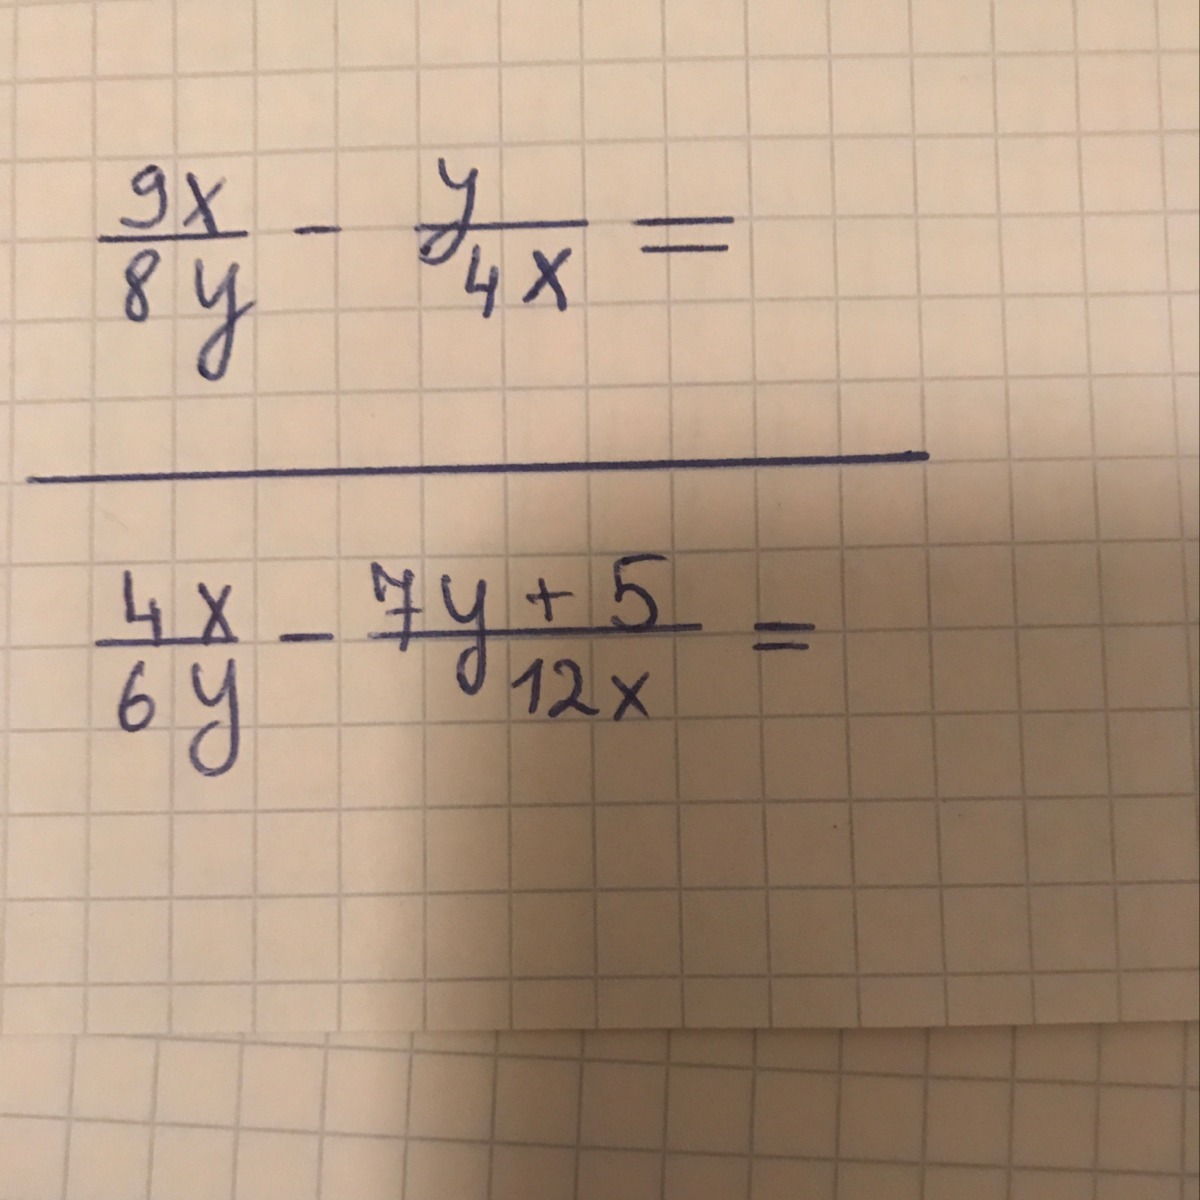 9x/8y - y/4x =
4x/6y - 7y+5/12x =